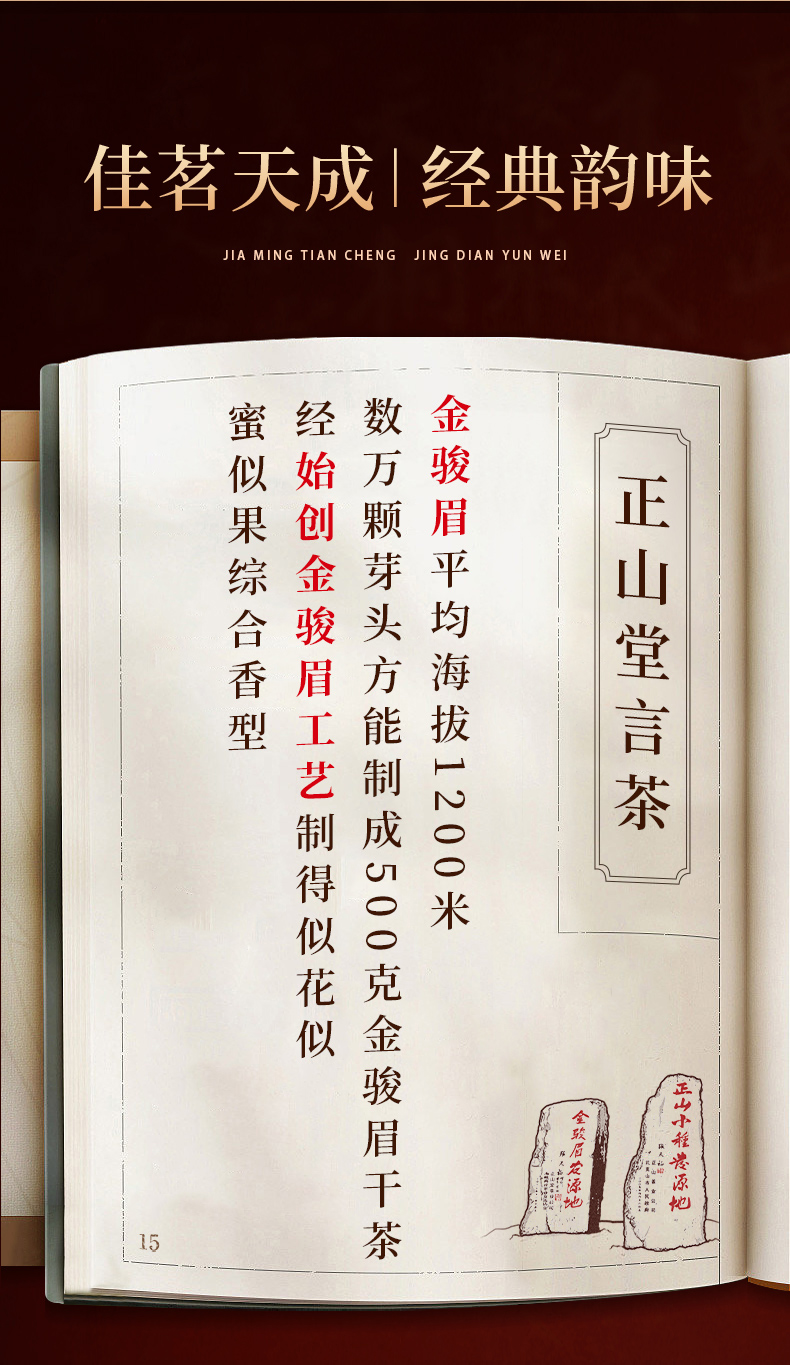 佳茗天成｜经典韵味
JIA MING TIAN CHENG JING DIAN YUN WEI
正山堂言茶
金骏眉平均海拔1200米
数万颗芽头方能制成500克金骏眉干茶
经始创金骏眉工艺制得似花似
蜜似果综合香型
正山小種發源地
金骏眉发源地
15